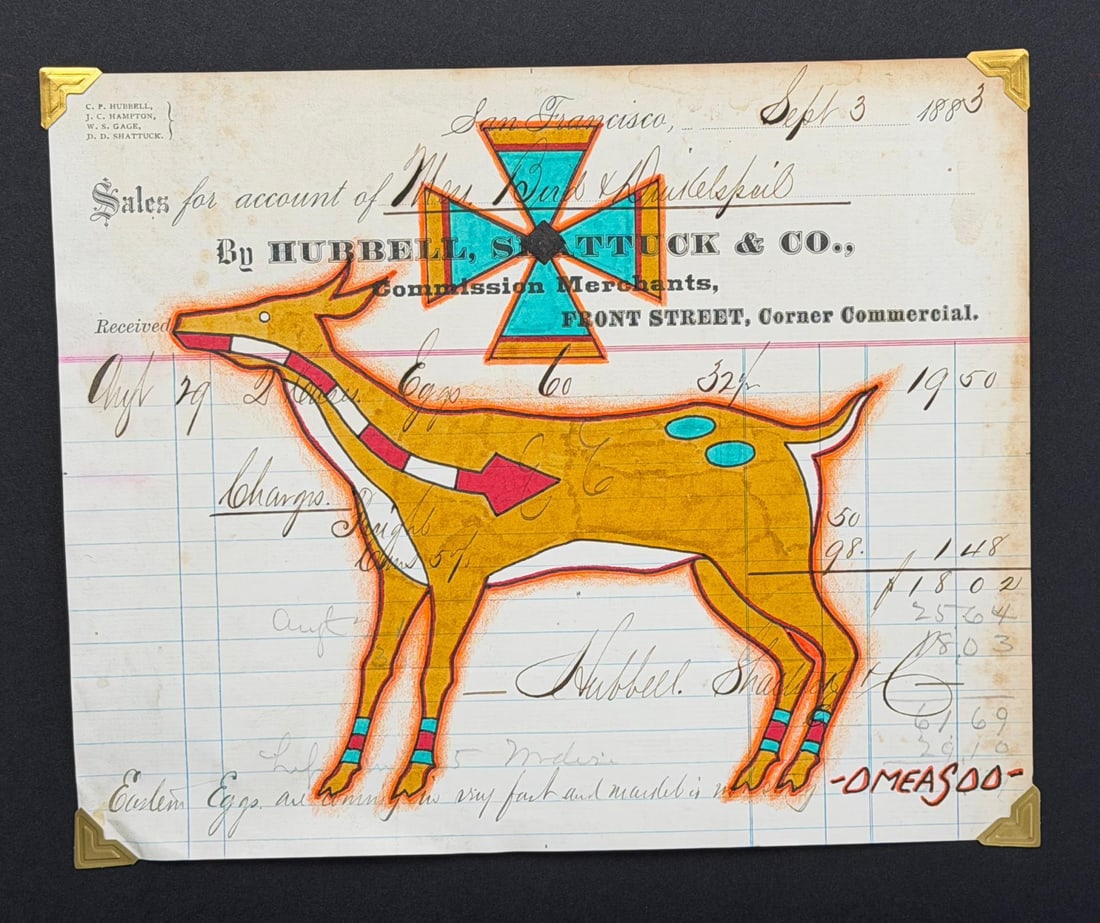 C. P. HUBBELL,
J. C. HAMPTON,
W. S. GAGE,
D. D. SHATTUCK.
San Francisco, Sept 3 1883
Sales for account of
By HUBBELL, SHATTUCK & CO.,
Commission Merchants,
FRONT STREET, Corner Commercial.
Received
29 2 Eggs 60 32½ 19 50
Charges.
50
5% 98. 1 48
18 02
25 64
18 03
Hubbell. Shattuck & Co
61 69
29 10
Eastern Eggs are coming in very fast and market is
-OMEASOO-